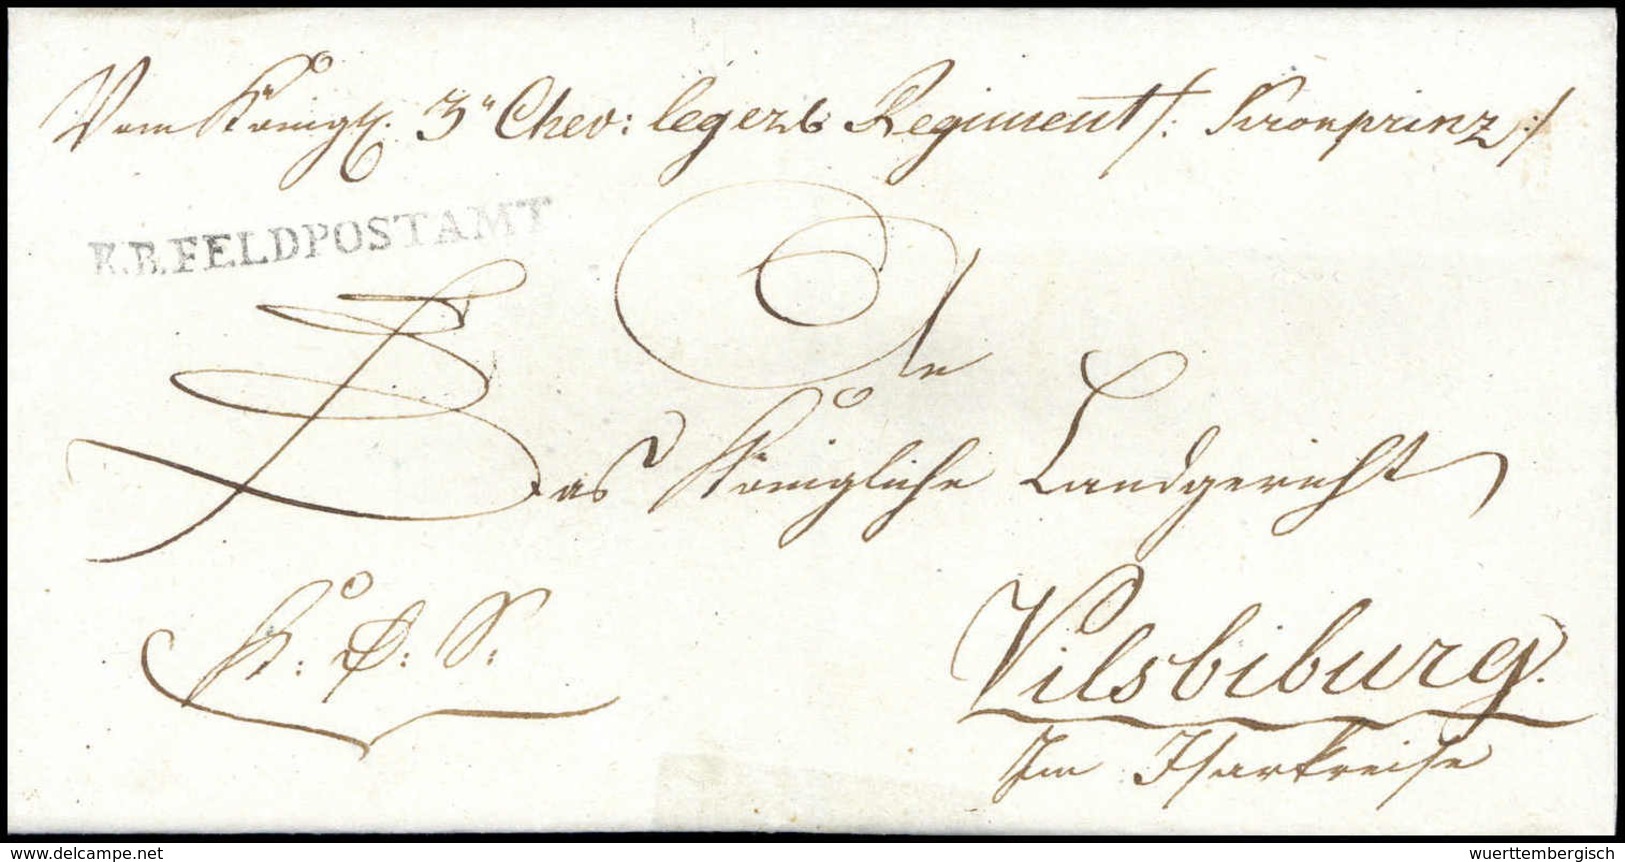 Vom Königl. 3n Chev: legers Regiment /: Kronprinz :/
K.B.FELDPOSTAMT
An
Das Königliche Landgericht
K: D: S:
Vilsbiburg.
Im Isarkreise
© delcampe.net
wuerttembergisch